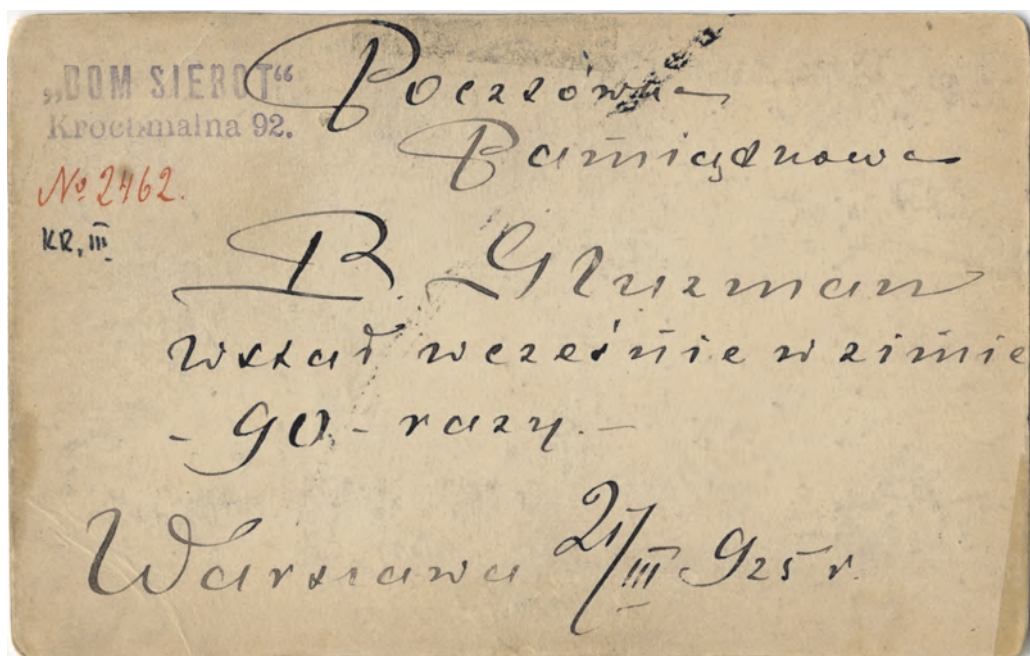 „DOM SIEROT“
Krochmalna 92.
№ 2462.
KR, III
Pocztówka
Pamiątkowa
R. Gluzman
Wstał wcześnie w zimie
- 90 - razy. -
Warszawa 21/III 925 r.